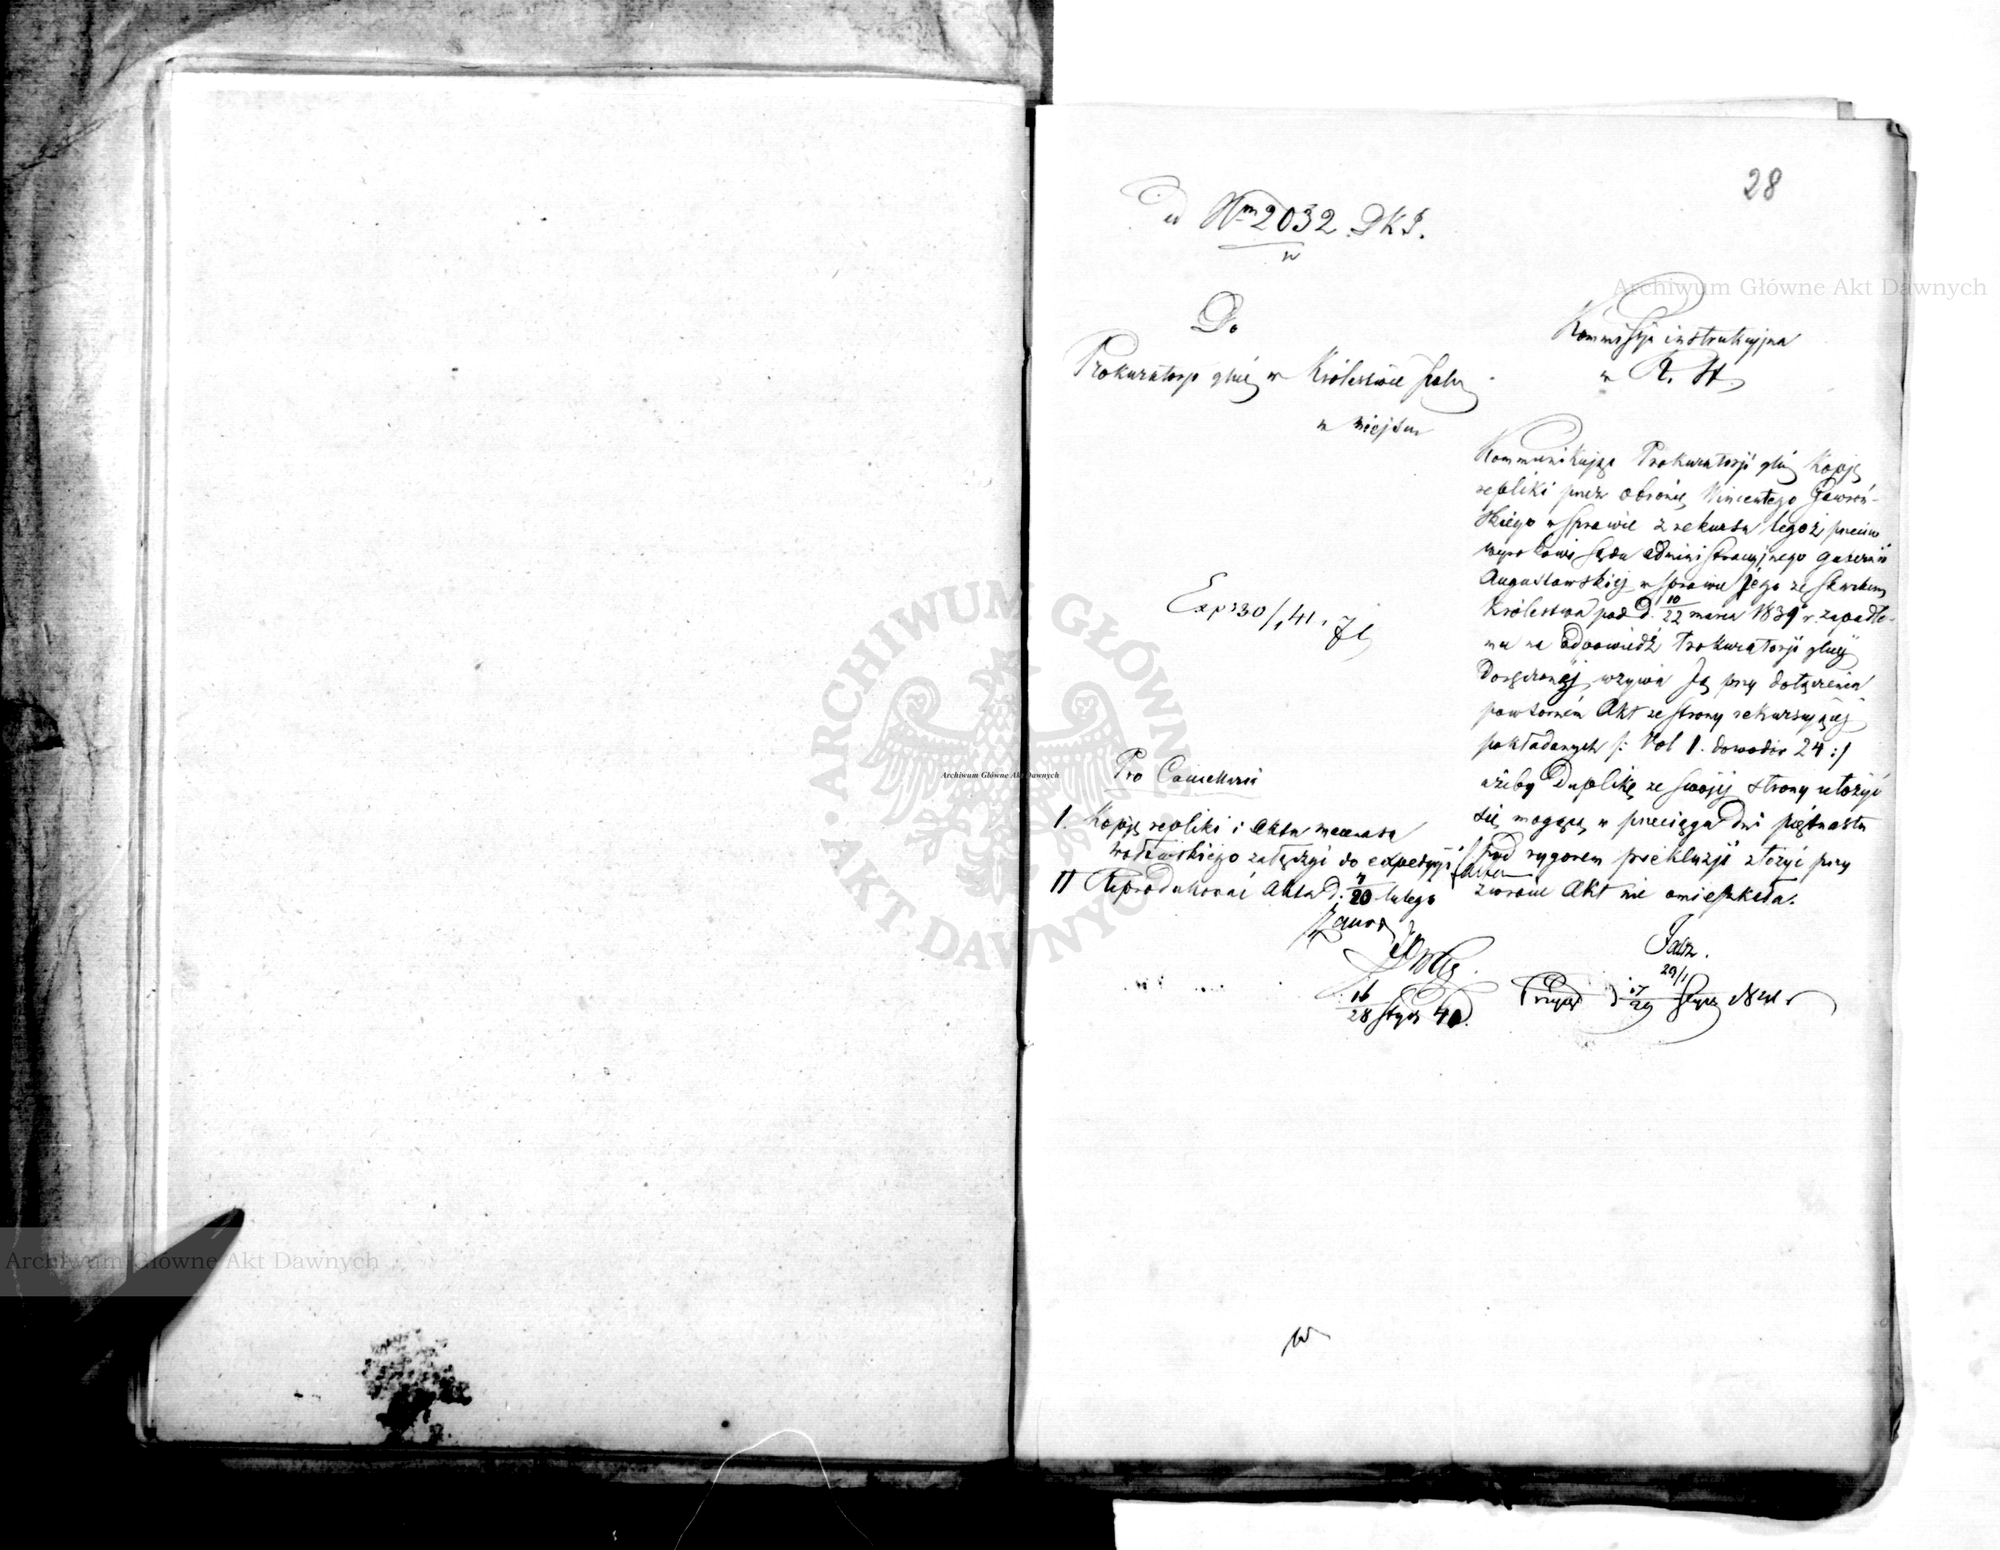 28
ad Nrm 2032 DKI.
w
Do
Prokuratorji glnej w Królestwie Polm
w miejscu
Kommissja instrukcyjna
w
Kommunikując Prokuratorji glnej Kopję
repliki przez obronę Wincentego Gawroń-
skiego w sprawie z rekursu tegoż przeciw
wyrokowi Sądu administracyjnego gubernii
Augustowskiej w sprawie jego ze Skarbem
Królestwa pod d. 10/22 marca 1839 r. zapadłe-
mu na odpowiedź Prokuratorji glnej
doręczonej, wzywa Ją przy dołączeniu
powtórnem Akt ze strony rekursującej
pokładanych /: Vol 1. dowodów 24 :/
ażeby Duplikę ze swojej strony złożyć
się mogącą w przeciągu dni piętnastu
pod rygorem prekluzji złożyć przy
zwrocie Akt nie omieszkała.
Exp 30/1 41.
Pro Cancellarii
I. Kopję repliki i Akta mecenasa
Wołowskiego załączyć do expedycji
II Reprodukować Akta d. 20 lutego
16/28 Stycz 40.
29/1
Przyjąć d 17/29 Stycz
Archiwum Główne Akt Dawnych
Archiwum Główne Akt Dawnych
Archiwum Główne Akt Dawnych
ARCHIWUM GŁÓWNE AKT DAWNYCH